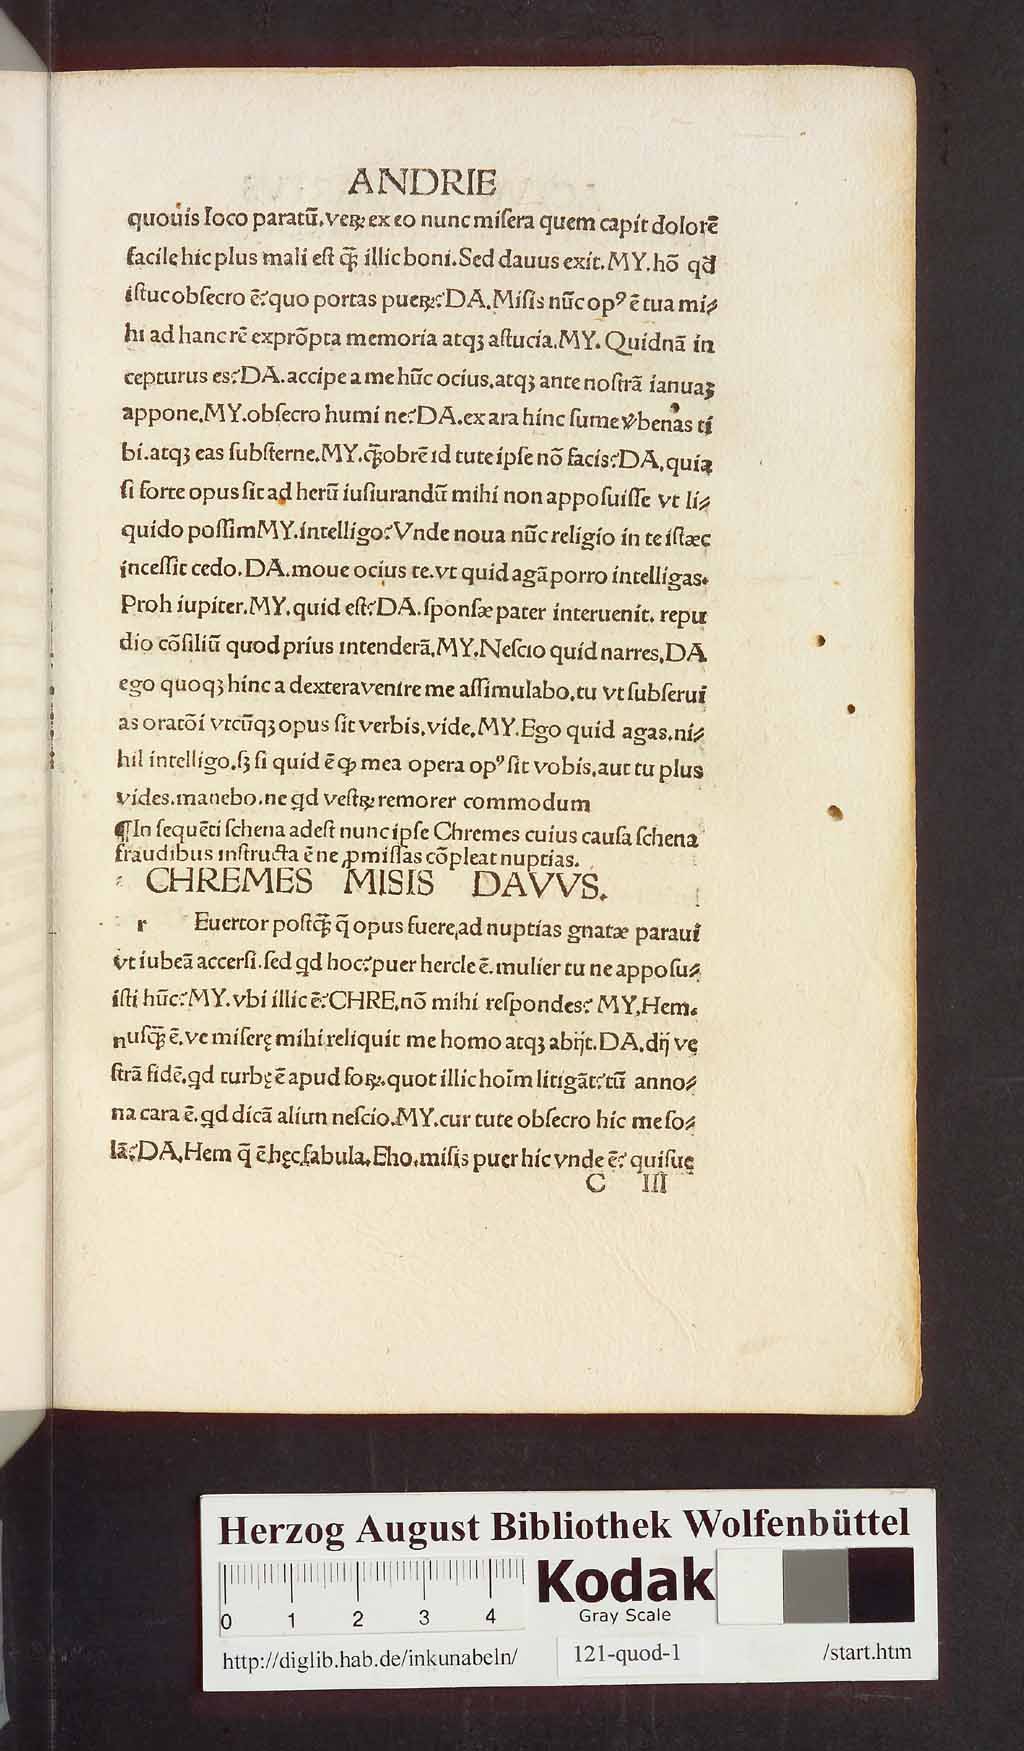 ANDRIE
quouis loco paratū.veꝝ ex eo nunc misera quem capit dolorē
facile hic plus mali est q̄ꝫ illic boni.Sed dauus exit.MY.hō qđ
istuc obsecro ē?quo portas pueꝝ?DA.Misis nūc opꝰ ē tua mi⸗
hi ad hanc rē exprōpta memoria atqꝫ astucia.MY.Quidnā in
cepturus es?DA.accipe a me hūc ocius.atqꝫ ante nostrā ianuaꝫ
appone.MY.obsecro humi ne?DA.ex ara hinc sume ꝟbenas ti
bi.atqꝫ eas substerne.MY.q̄ꝫobrē id tute ipse nō facis?DA.quia
si forte opus sit ad herū iusiurandū mihi non apposuisse vt li⸗
quido possimMY.intelligo?Vnde noua nūc religio in te istæc
incessit cedo.DA.moue ocius te.vt quid agā porro intelligas.
Proh iupiter.MY.quid est?DA.sponsæ pater interuenit. repu
dio cōsiliū quod prius intenderā.MY.Nescio quid narres.DA
ego quoqꝫ hinc a dextera venire me assimulabo.tu vt subserui
as oratōi vtcūqꝫ opus sit verbis.vide.MY.Ego quid agas.ni⸗
hil intelligo.sꝫ si quid ē ꝙ mea opera opꝰ sit vobis.aut tu plus
vides.manebo.ne qđ vestꝝ remorer commodum
¶In sequēti schena adest nunc ipse Chremes cuius causa schena
fraudibus instructa ē ne ꝓmissas cōpleat nuptias.
CHREMES MISIS DAVVS.
r Euertor postq̄ꝫ q̄ opus fuere,ad nuptias gnatæ paraui
vt iubeā accersi.sed qđ hoc?puer hercle ē.mulier tu ne apposu⸗
isti hūc?MY.vbi illic ē?CHRE.nō mihi respondes? MY.Hem.
nusq̄ꝫ ē.ve miserę mihi reliquit me homo atqꝫ abijt.DA.dij ve
strā fidē.qđ turbę ē apud foꝝ.quot illic hoīm litigāt?tū anno⸗
na cara ē.qđ dicā aliun nescio.MY.cur tute obsecro hic me so⸗
lā?DA.Hem q̄ ē hęc fabula.Eho.misis puer hic vnde ē? quisue
C III
Herzog August Bibliothek Wolfenbüttel
0 1 2 3 4
Kodak
Gray Scale
http://diglib.hab.de/inkunabeln/ 121-quod-1 /start.htm